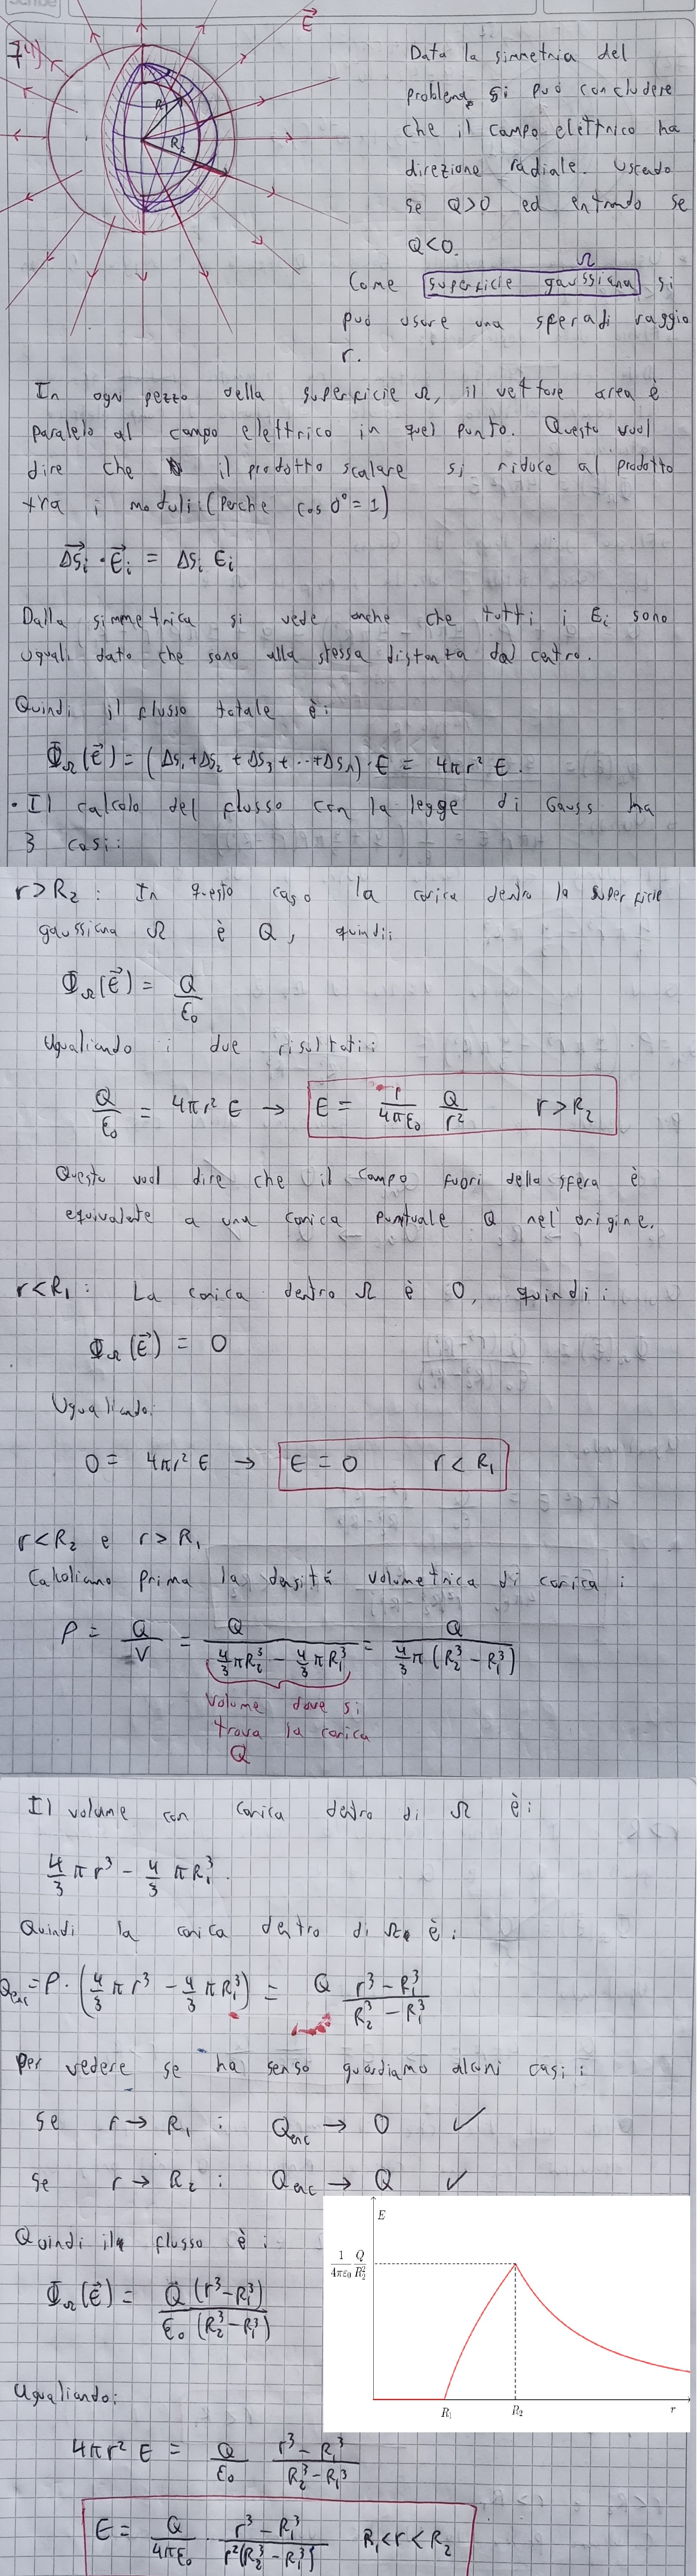 74)
E⃗
R₁
R₂
Data la simmetria del
problema, si può concludere
che il campo elettrico ha
direzione radiale. Uscendo
se Q>0 ed entrando se
Q<0.
Ω
Come superficie gaussiana si
può usare una sfera di raggio
r.
In ogni pezzo della superficie Ω, il vettore area è
paralelo al campo elettrico in quel punto. Questo vuol
dire che il prodotto scalare si riduce al prodotto
tra i moduli: (Perche cos 0° = 1)
ΔS⃗ᵢ · E⃗ᵢ = ΔSᵢ Eᵢ
Dalla simmetrica si vede anche che tutti i Eᵢ sono
uguali dato che sono alla stessa distanza dal centro.
Quindi il flusso totale è:
Φ_Ω(E⃗) = (ΔS₁+ΔS₂+ΔS₃+...+ΔSₙ)·E = 4πr² E.
• Il calcolo del flusso con la legge di Gauss ha
3 casi:
r>R₂: In questo caso la carica dentro la superficie
gaussiana Ω è Q, quindi:
Φ_Ω(E⃗) = Q/ε₀
Ugualiando i due risultati:
Q/ε₀ = 4πr² E → E = 1/(4πε₀) Q/r² r>R₂
Questo vuol dire che il campo fuori della sfera è
equivalente a una carica puntuale Q nel'origine.
r<R₁: La carica dentro Ω è 0, quindi:
Φ_Ω(E⃗) = 0
Ugualiando:
0 = 4πr² E → E = 0 r<R₁
r<R₂ e r>R₁
Calcoliamo prima la densità volumetrica di carica:
ρ = Q/V = Q/(4/3 πR₂³ − 4/3 πR₁³) = Q/(4/3 π(R₂³−R₁³))
Volume dove si
trova la carica
Q
Il volume con carica dentro di Ω è:
4/3 πr³ − 4/3 πR₁³.
Quindi la carica dentro di Ω è:
Q_enc = ρ·(4/3 πr³ − 4/3 πR₁³) = Q (r³−R₁³)/(R₂³−R₁³)
Per vedere se ha senso guardiamo alcuni casi:
Se r→R₁: Q_enc → 0 ✓
Se r→R₂: Q_enc → Q ✓
Quindi il flusso è:
Φ_Ω(E⃗) = Q(r³−R₁³)/(ε₀(R₂³−R₁³))
E
1/(4πε₀) Q/R₂²
R₁
R₂
r
Ugualiando:
4πr² E = Q/ε₀ (r³−R₁³)/(R₂³−R₁³)
E = Q/(4πε₀) · (r³−R₁³)/(r²(R₂³−R₁³)) R₁<r<R₂